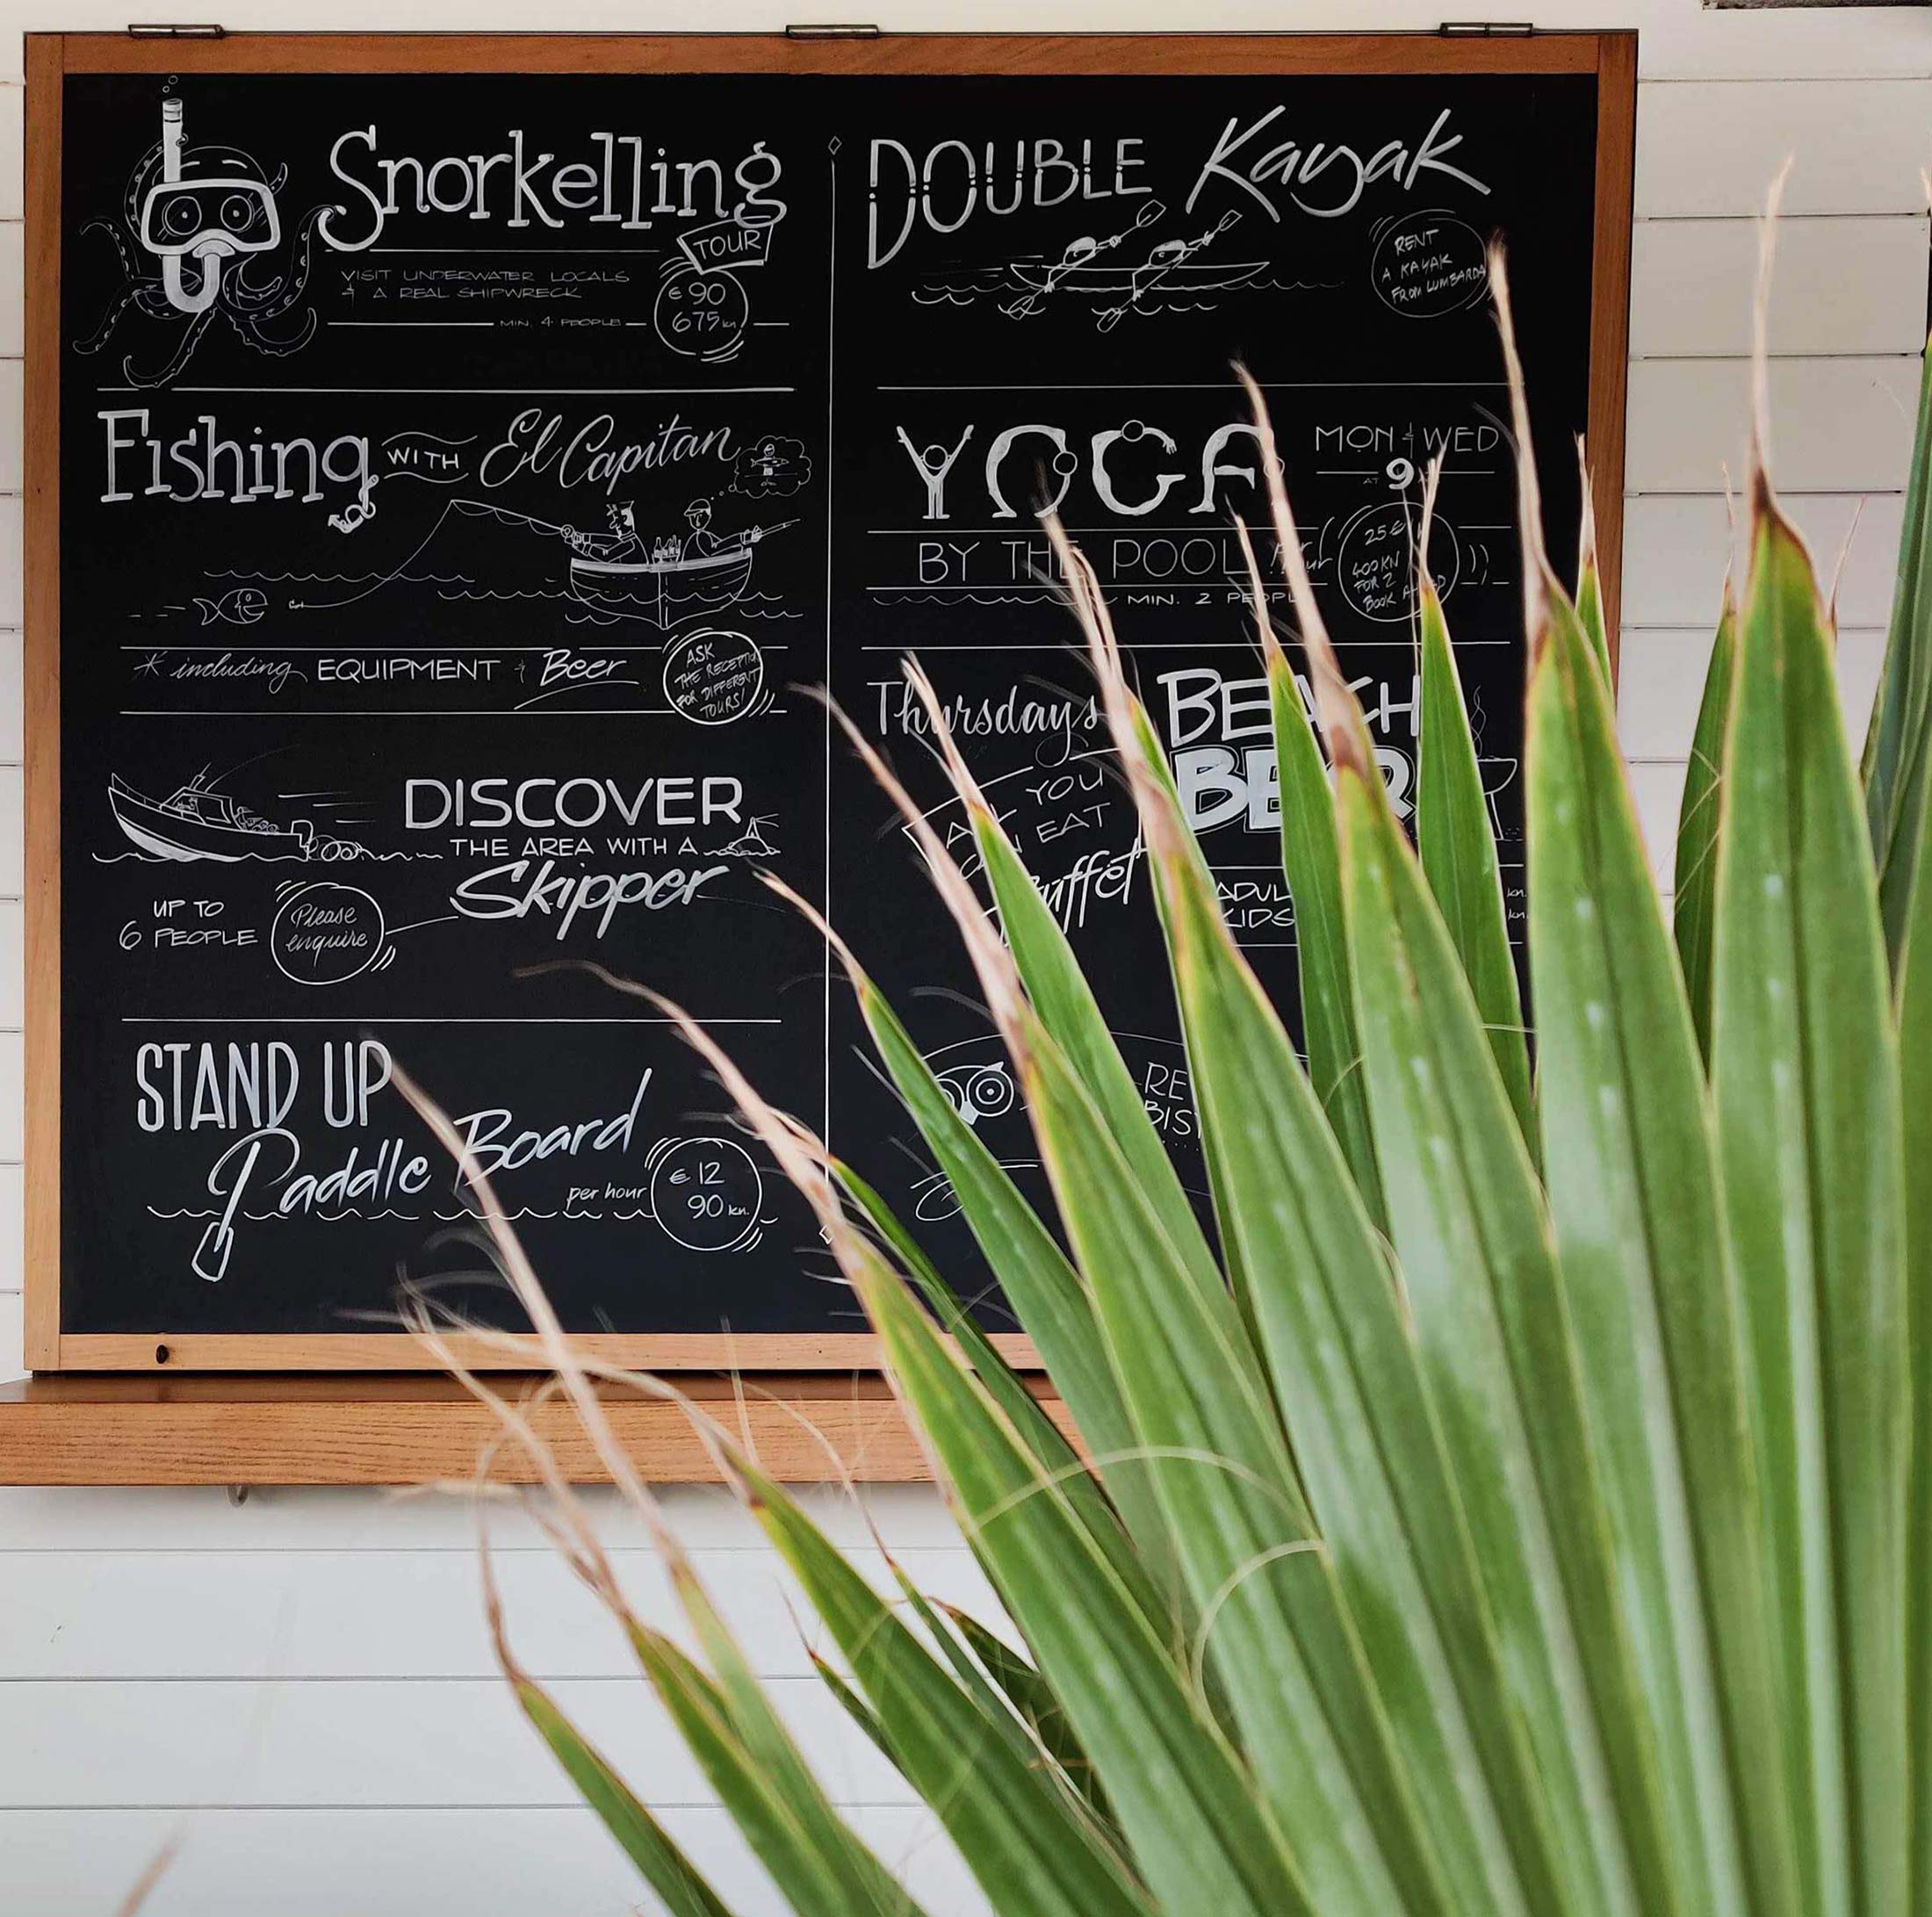 Snorkelling
TOUR
VISIT UNDERWATER LOCALS
& A REAL SHIPWRECK
MIN. 4 PEOPLE
€ 90
675 kn.
Fishing WITH El Capitan
* including EQUIPMENT & Beer
ASK
THE RECEPTION
FOR DIFFERENT
TOURS!
DISCOVER
THE AREA WITH A
Skipper
UP TO
6 PEOPLE
Please
enquire
STAND UP
Paddle Board
per hour
€ 12
90 kn.
DOUBLE Kayak
RENT
A KAYAK
FROM LUMBARDA
YOGA
MON & WED
AT 9
BY THE POOL
MIN. 2 PEOPL
25 €
400 KN
FOR 2
BOOK
Thursdays
BEACH
YOU
EAT
Buffet
ADUL
KIDS
kn.
kn.
RE
BIST